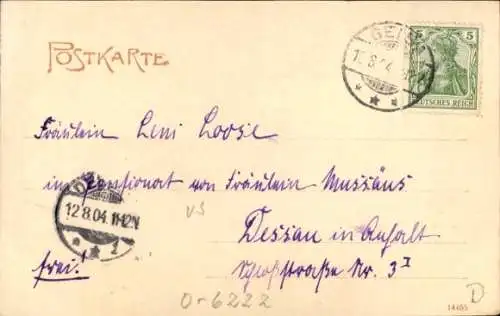 POSTKARTE
5
DEUTSCHES REICH
Fräulein Leni Loose
im Pensionat von Fräulein Mussäus
VS
Dessau in Anhalt
12.8.04. 11-12N
1
frei!
Schloßstraße Nr. 3 I
O-6222
14465
D